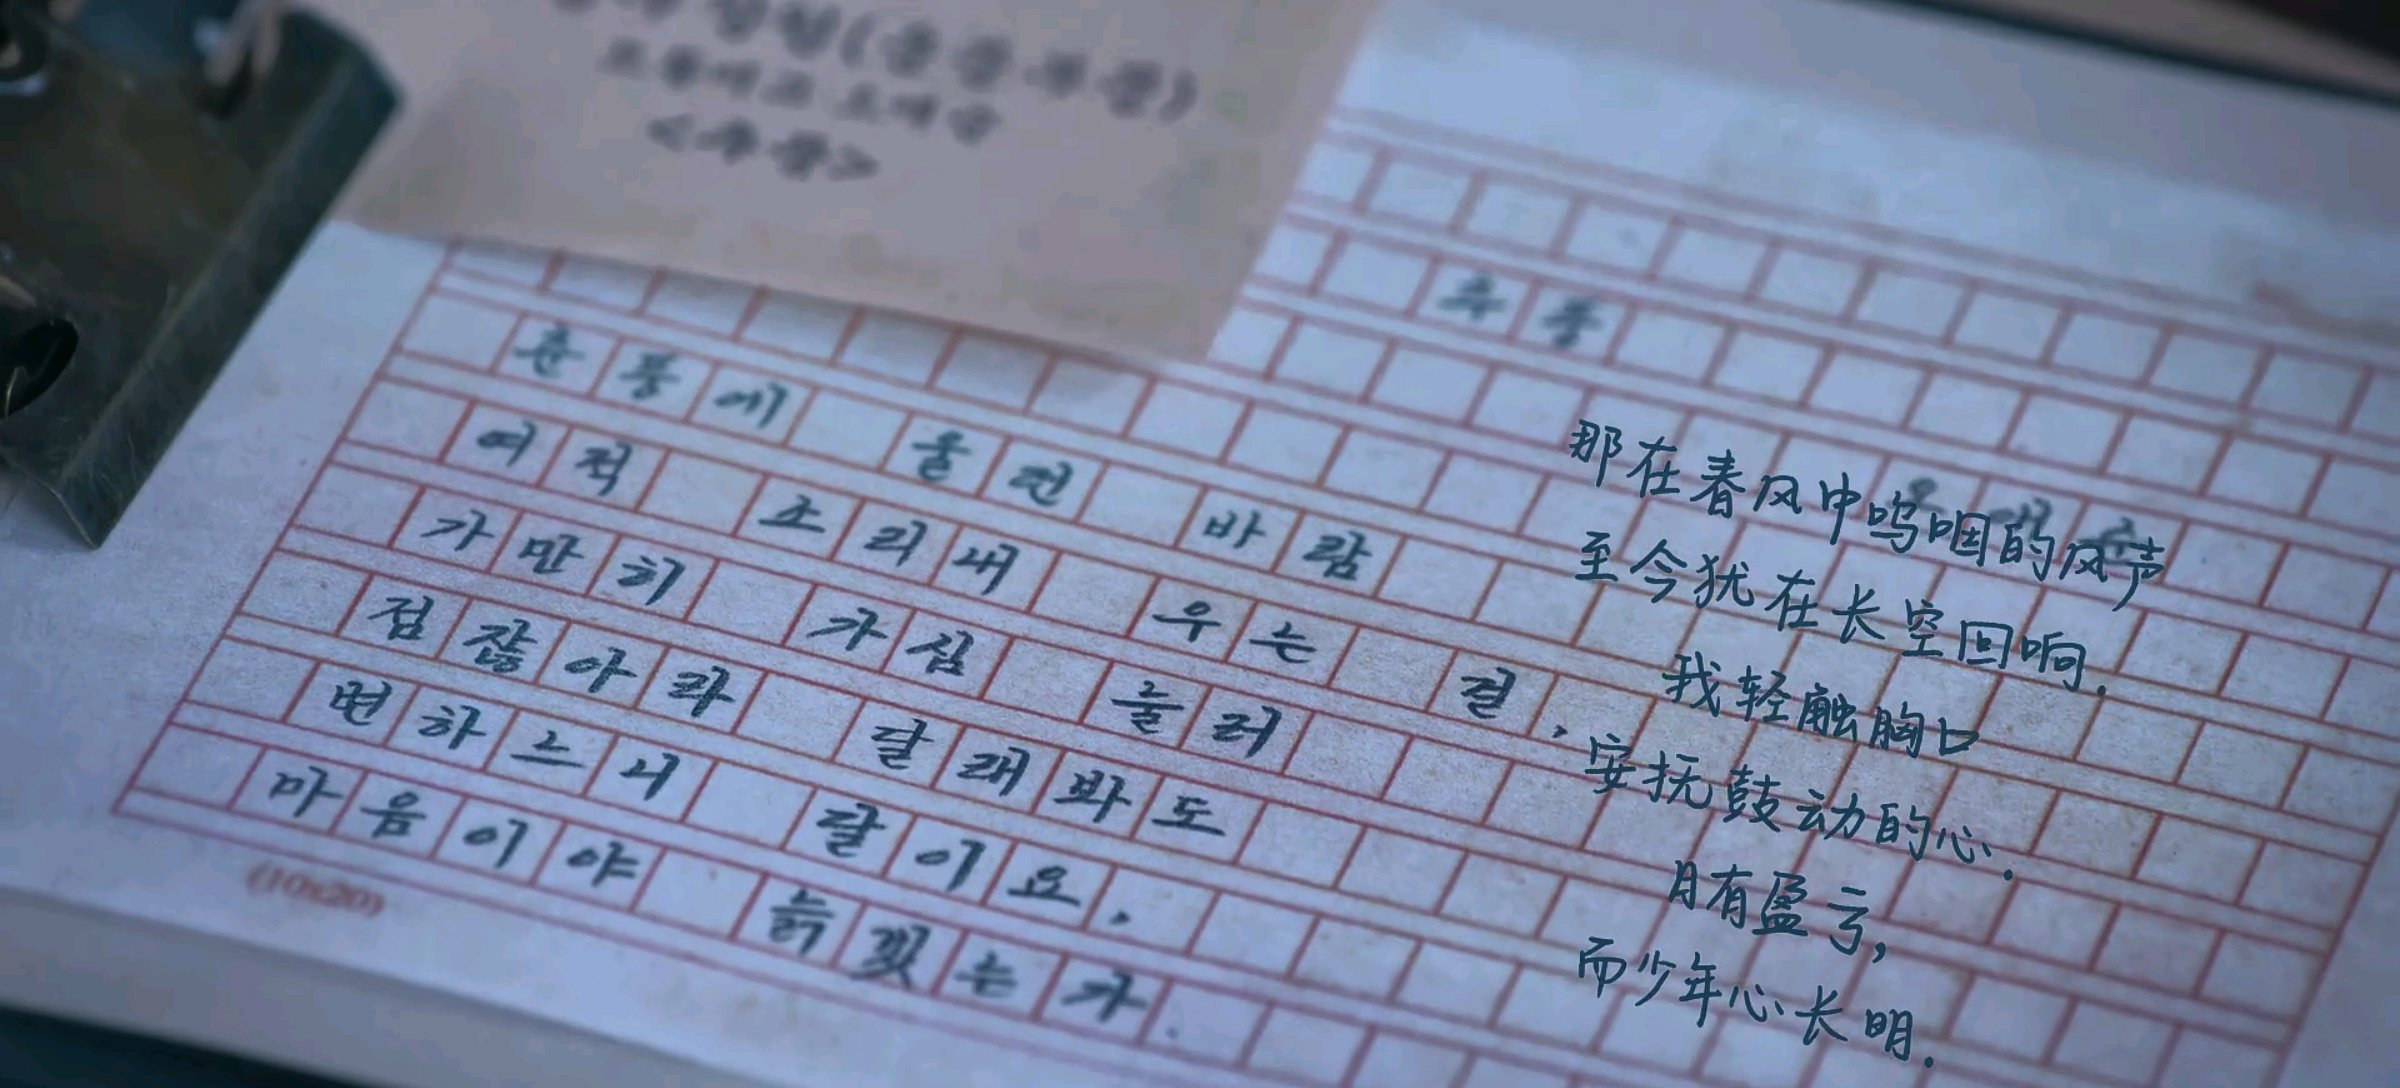 <추풍>
추풍
춘풍에 울던 바람
여적 소리내 우는 걸,
가만히 가심 눌러
점잖아라 달래봐도
변하느니 달이요,
마음이야 늙겠는가.
(10x20)
那在春风中呜咽的风声
至今犹在长空回响.
我轻触胸口
安抚鼓动的心.
月有盈亏,
而少年心长明.